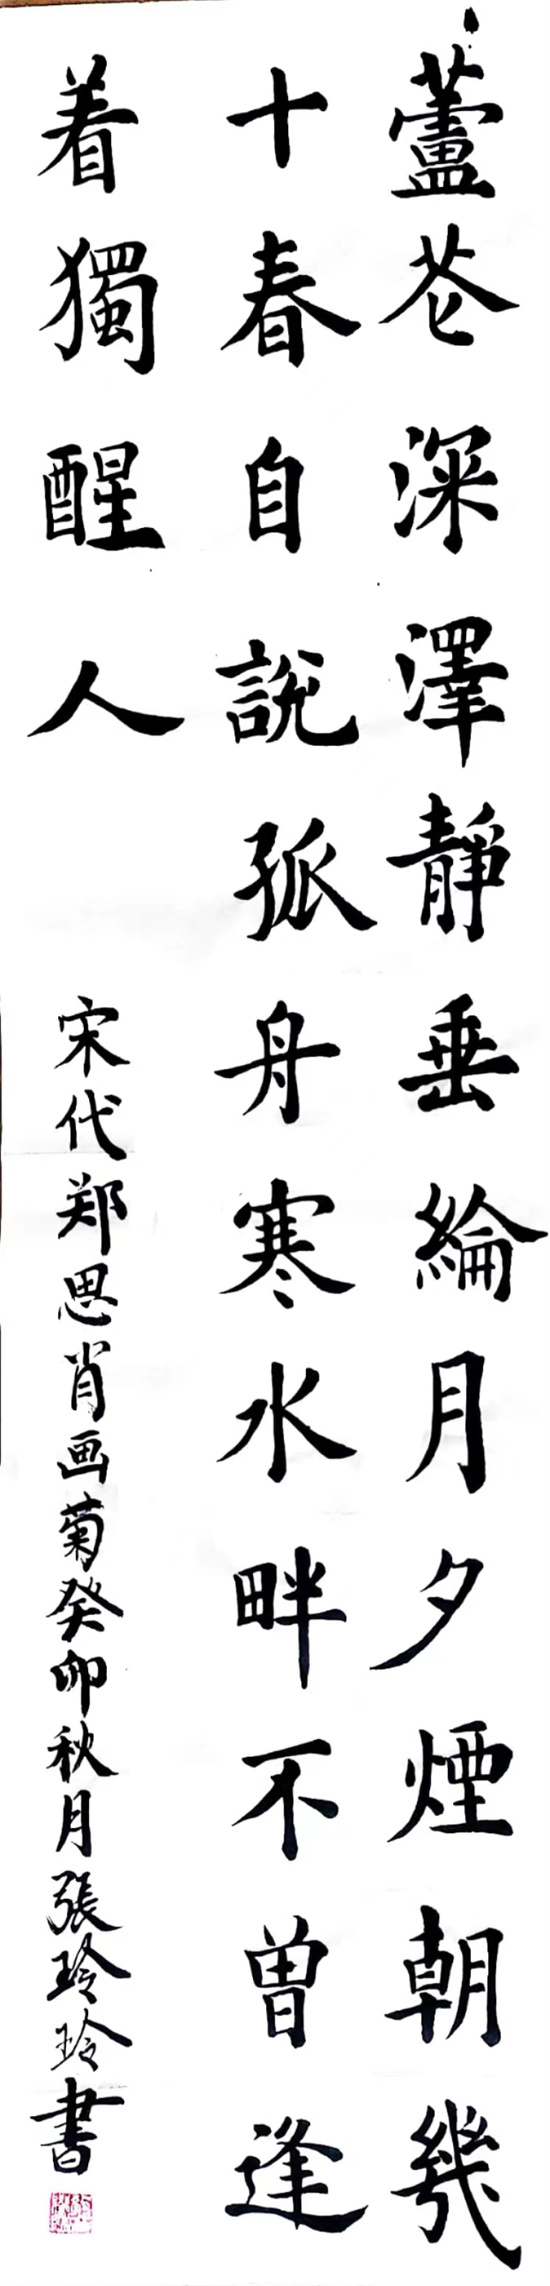 蘆花深澤靜垂綸月夕煙朝幾
十春自說孤舟寒水畔不曾逢
着獨醒人
宋代郑思肖画菊癸卯秋月張玲玲書